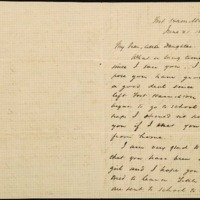 Fort Hamilton
June 21
My Dear little Daughter
What a long time
since I saw you. I
pose you have grown
a good deal since
left Fort Hamilton
began to go to school
hope I should not
you if I met you
from home.
I am very glad to
that you have been a
girl and I hope you
tried to learn. Little
are sent to school to